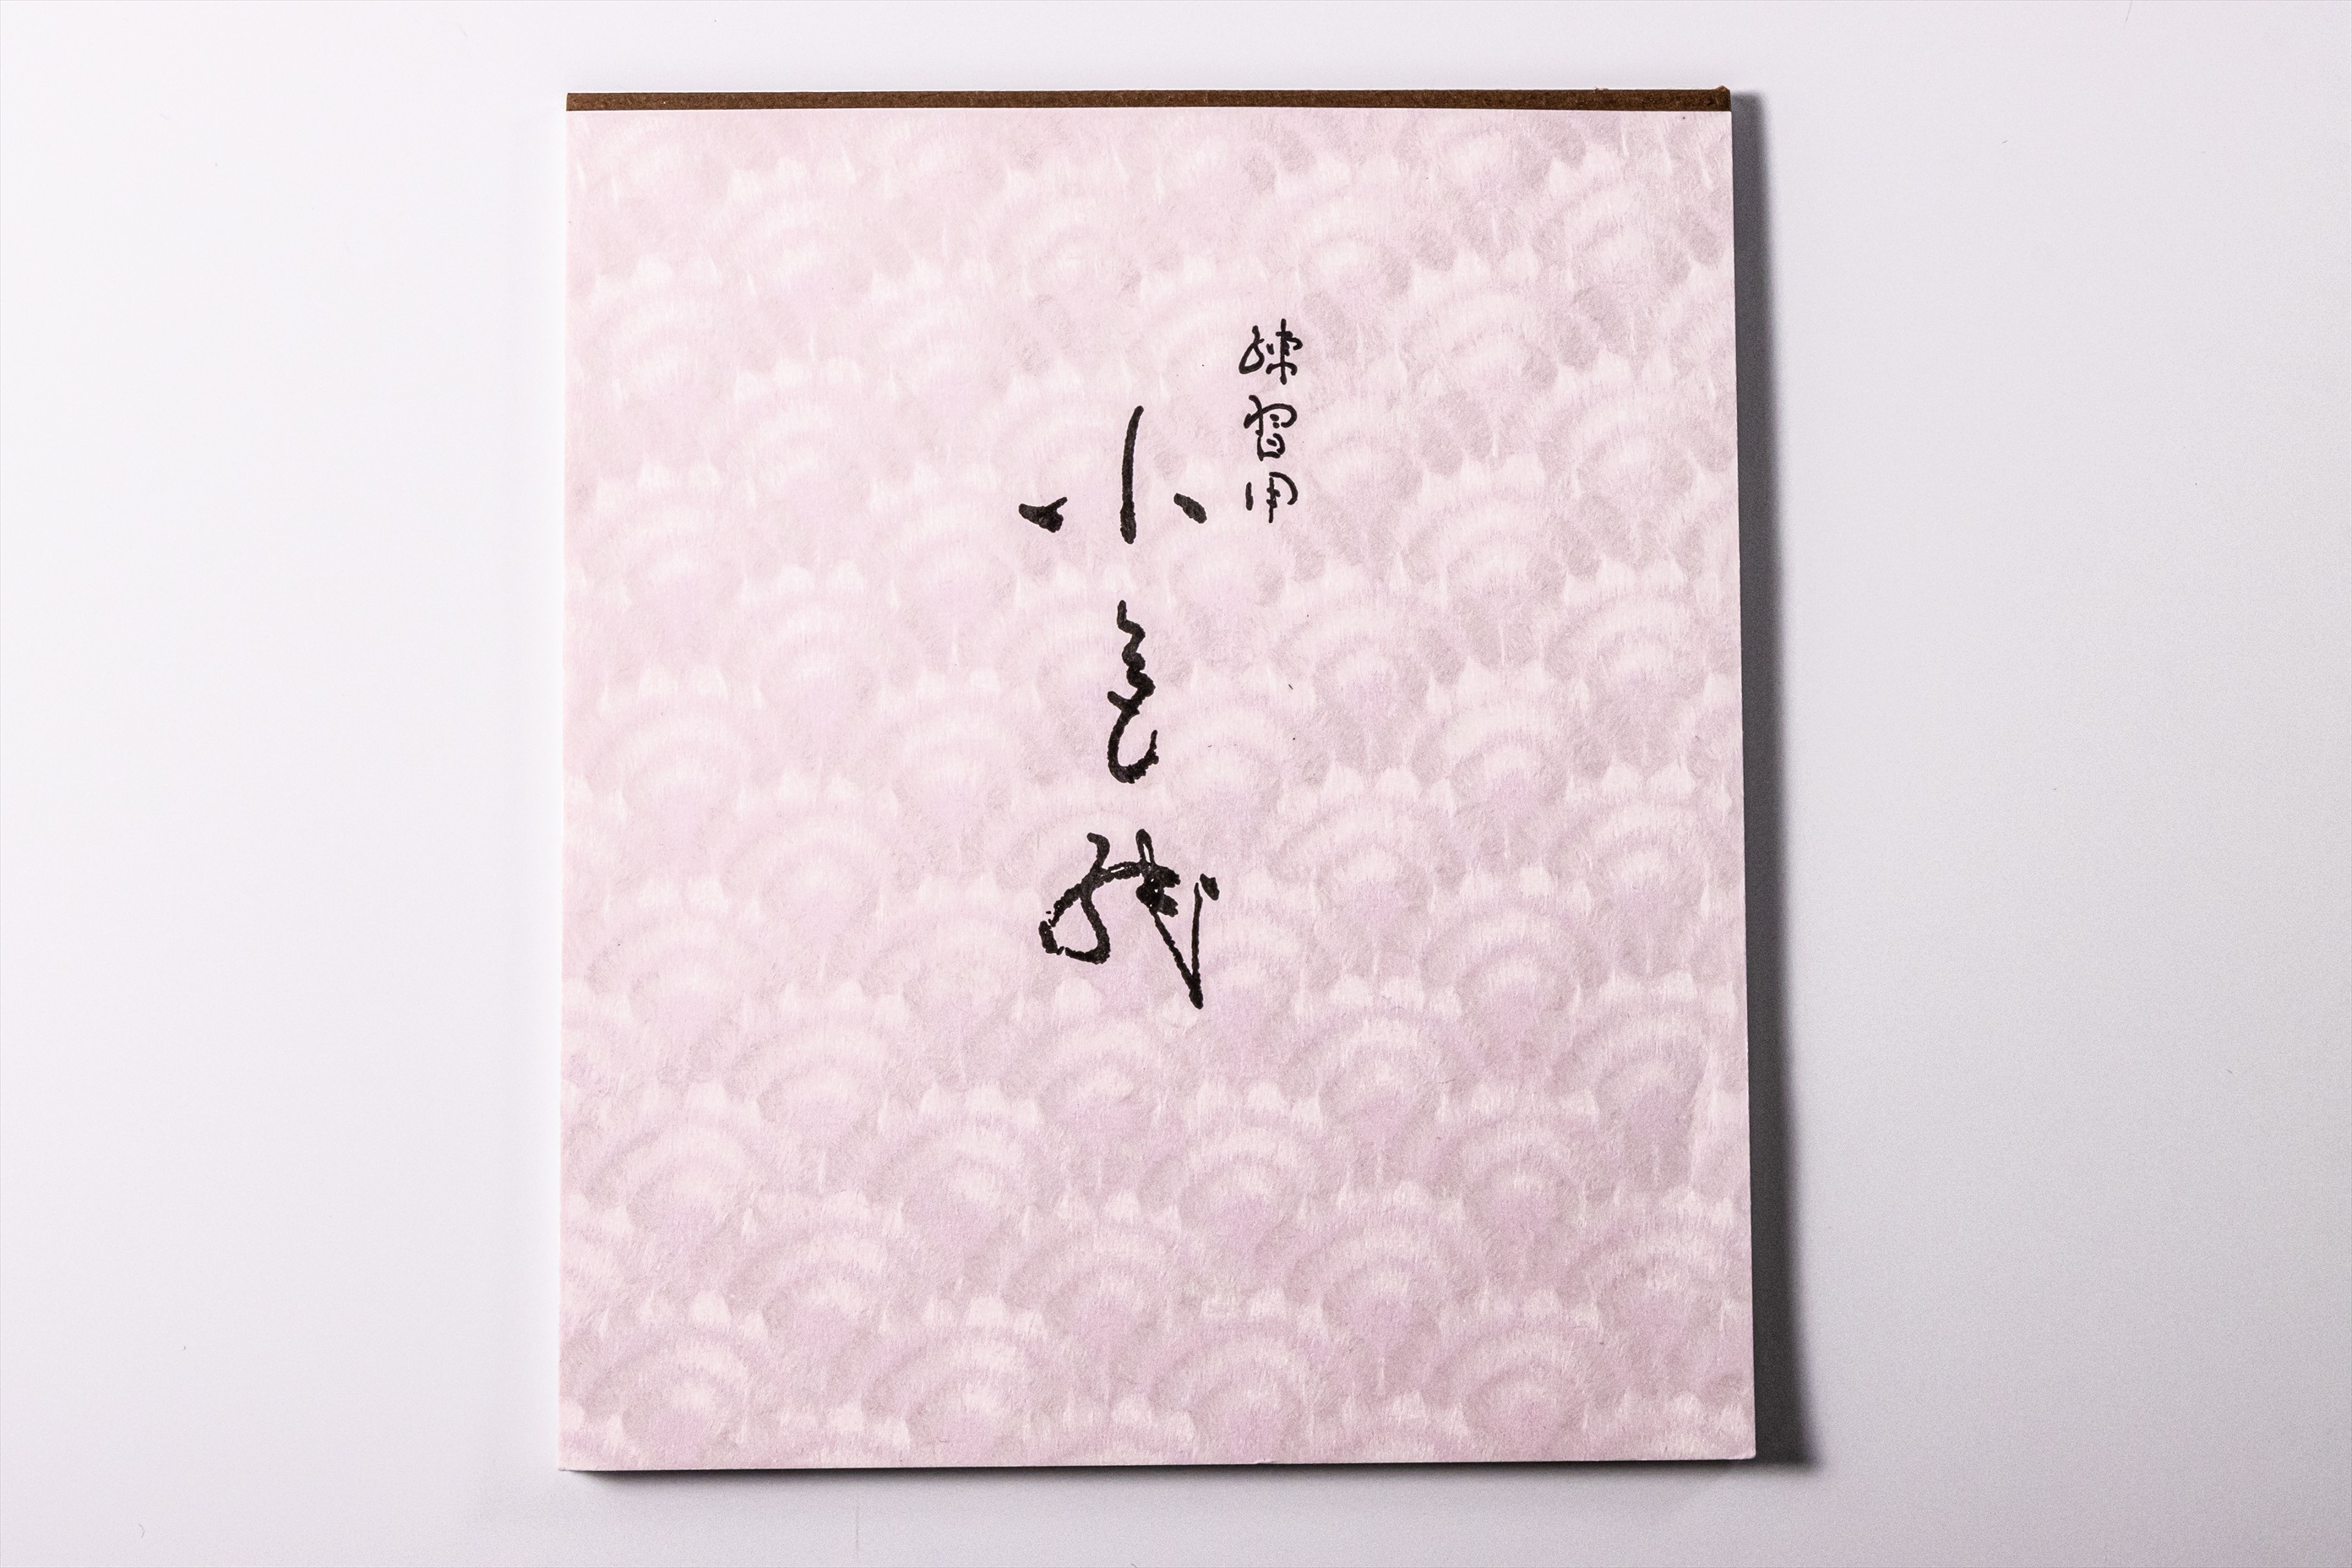 練習用
小色紙